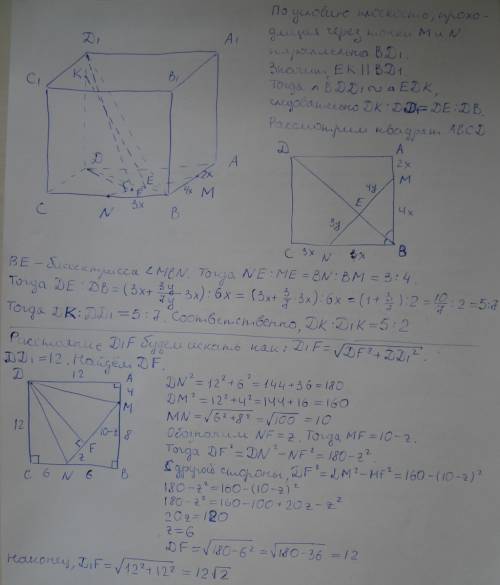 По условию плоскость, прохо-
дящая через точки M и N
параллельна BD₁.
Значит, EK || BD₁.
Тогда △BDD₁ ∾ △EDK,
следовательно DK:DD₁=DE:DB.
Рассмотрим квадрат ABCD
D₁
A₁
K
C₁
B₁
D
A
2x
F
E
4x
M
C
N
3x
B
D
A
2x
M
4y
E
4x
3y
C
3x
N
3x
B
BE – биссектриса ∠MBN. Тогда NE:ME=BN:BM=3:4.
Тогда DE:DB=(3x+3y/7y·3x):6x=(3x+3/7·3x):6x=(1+3/7):2=10/7:2=5:7
Тогда DK:DD₁=5:7. Соответственно, DK:D₁K=5:2
Расстояние D₁F будем искать как: D₁F=√DF²+DD₁².
DD₁=12. Найдём DF.
D
12
A
4
M
12
10-z
8
F
z
C
6
N
6
B
DN²=12²+6²=144+36=180
DM²=12²+4²=144+16=160
MN=√6²+8²=√100=10
Обозначим NF=z. Тогда MF=10-z.
Тогда DF²=DN²-NF²=180-z².
С другой стороны, DF²=DM²-MF²=160-(10-z)²
180-z²=160-(10-z)²
180-z²=160-100+20z-z²
20z=120
z=6
DF=√180-6²=√180-36=12
Наконец, D₁F=√12²+12²=12√2